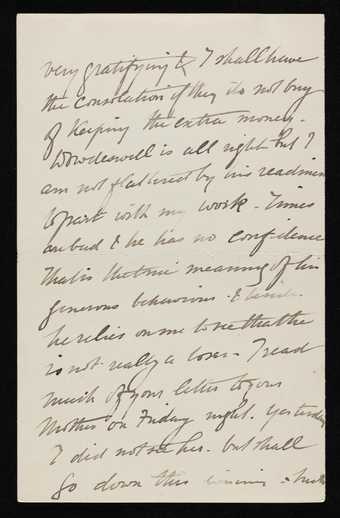 very gratifying & I shall have
the consolation if they do not buy
of keeping the extra money.
Dowdeswell is all right but I
am not flattered by his readiness
to part with my work. Times
are bad & he has no confidence
That is the true meaning of his
generous behaviour. &
he relies on me to see that he
is not really a loser. I read
much of your letter to your
Mother on Friday night. Yesterday
I did not see her. but shall
go down this